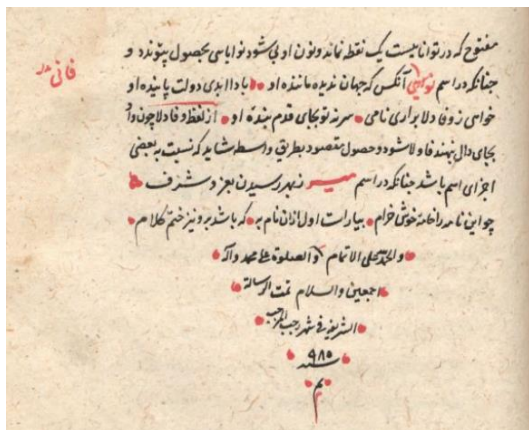 مفتوح که در توانا نیست یک نقطه نماند و نون او بی شود نوا باسی بحصول پیوندد و
چنانکه در اسم آنکس که جهان ندیده ماننده او بادا ابدی دولت پاینده او
فانی
خواهی ز وفا دلا برآری نامی سر نه تو بجای قدم بنده او از لفظ وفا دلا چون واو
بجای دال نهند فا و لا شود و حصول مقصود بطریق واسطه شاید که نسبت به بعضی
اجزای اسم باشد چنانکه در اسم میر ز بهر رسیدن بعز و شرف
چو این نامه را خامه خوش خرام بیاراست اول از آن نام به که باشد برو نیز ختم کلام
والحمد لله علی الاتمام والصلوة علی محمد وآله
اجمعین والسلام تمت الرسالة
الشریفه فی شهر رجب المرجب
سنه ۹۸۵
م